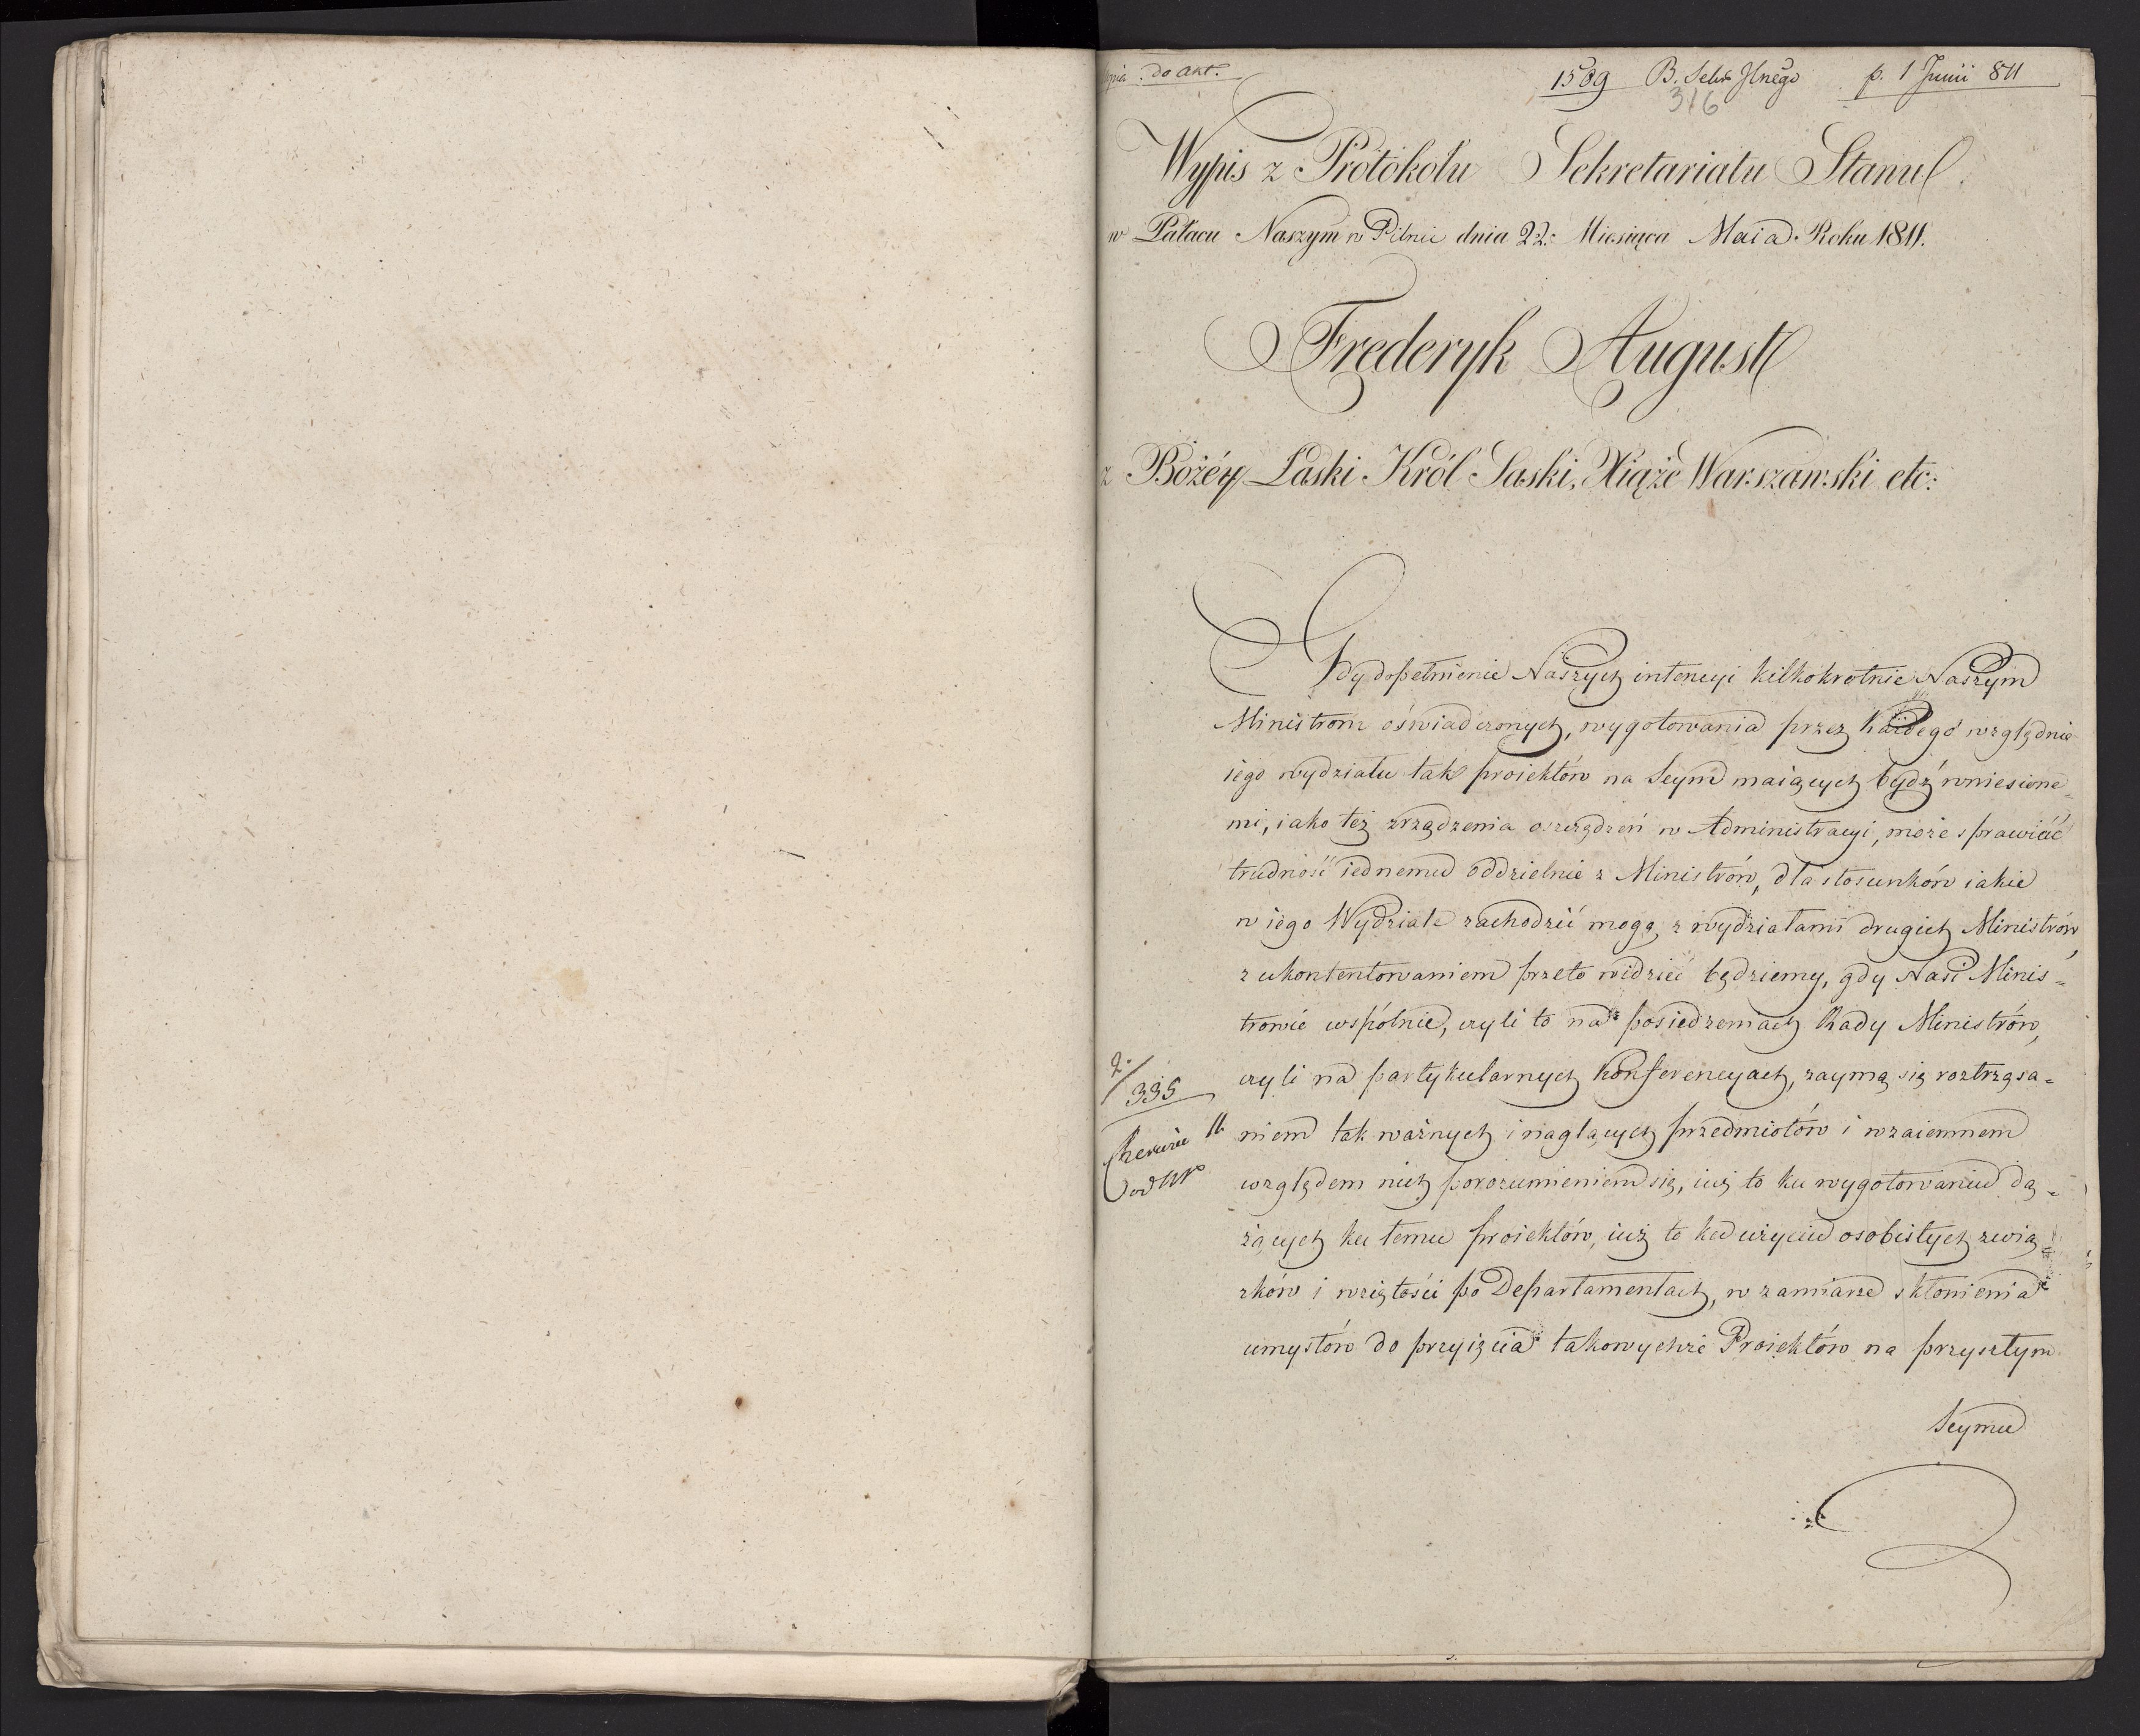 do akt.
1589 B. Sekr Jlnego p. 1 Junii 811
316
Wypis z Protokołu Sekretariatu Stanu
w Pałacu Naszym w Pilnic dnia 22: Miesiąca Maia Roku 1811.
Frederyk August
z Bożéy Łaski Król Saski, Xiąże Warszawski etc:
Gdy dopełnienie Naszych intencyi kilkokrotnie Naszym
Ministrom oświadczonych, wygotowania przez każdego względnie
iego wydziału tak proiektów na Seym maiących bydź wniesione-
mi, iako też zrządzenia oszczędzeń w Administracyi, może sprawić
trudność iednemu oddzielnie z Ministrów, dla stosunków iakie
w iego Wydziale zachodzić mogą z wydziałami drugich Ministrów,
z ukontentowaniem przeto widzieć będziemy, gdy Nasi Minis-
trowie wspólnie, czyli to na posiedzeniach Rady Ministrów,
czyli na partykularnych konferencyach, zaymą się roztrząsa-
niem tak ważnych i naglących przedmiotów i wzaiemnem
względem nich porozumieniem się, iuż to ku wygotowaniu dą-
żących ku temu proiektów, iuż to ku użyciu osobistych związ-
zków i wziętości po Departamentach, w zamiarze skłonienia
umysłów do przyięcia takowychże Proiektów na przyszłym
Seymu
2.
335